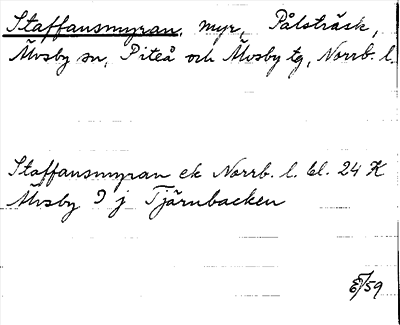 Staffansmyran, myr, Pålsträsk,
Älvsby sn, Piteå och Älvsby tg, Norrb. l.
Staffansmyran ek Norrb. l. bl. 24 K
Älvsby 9 j Tjärnbacken
/59